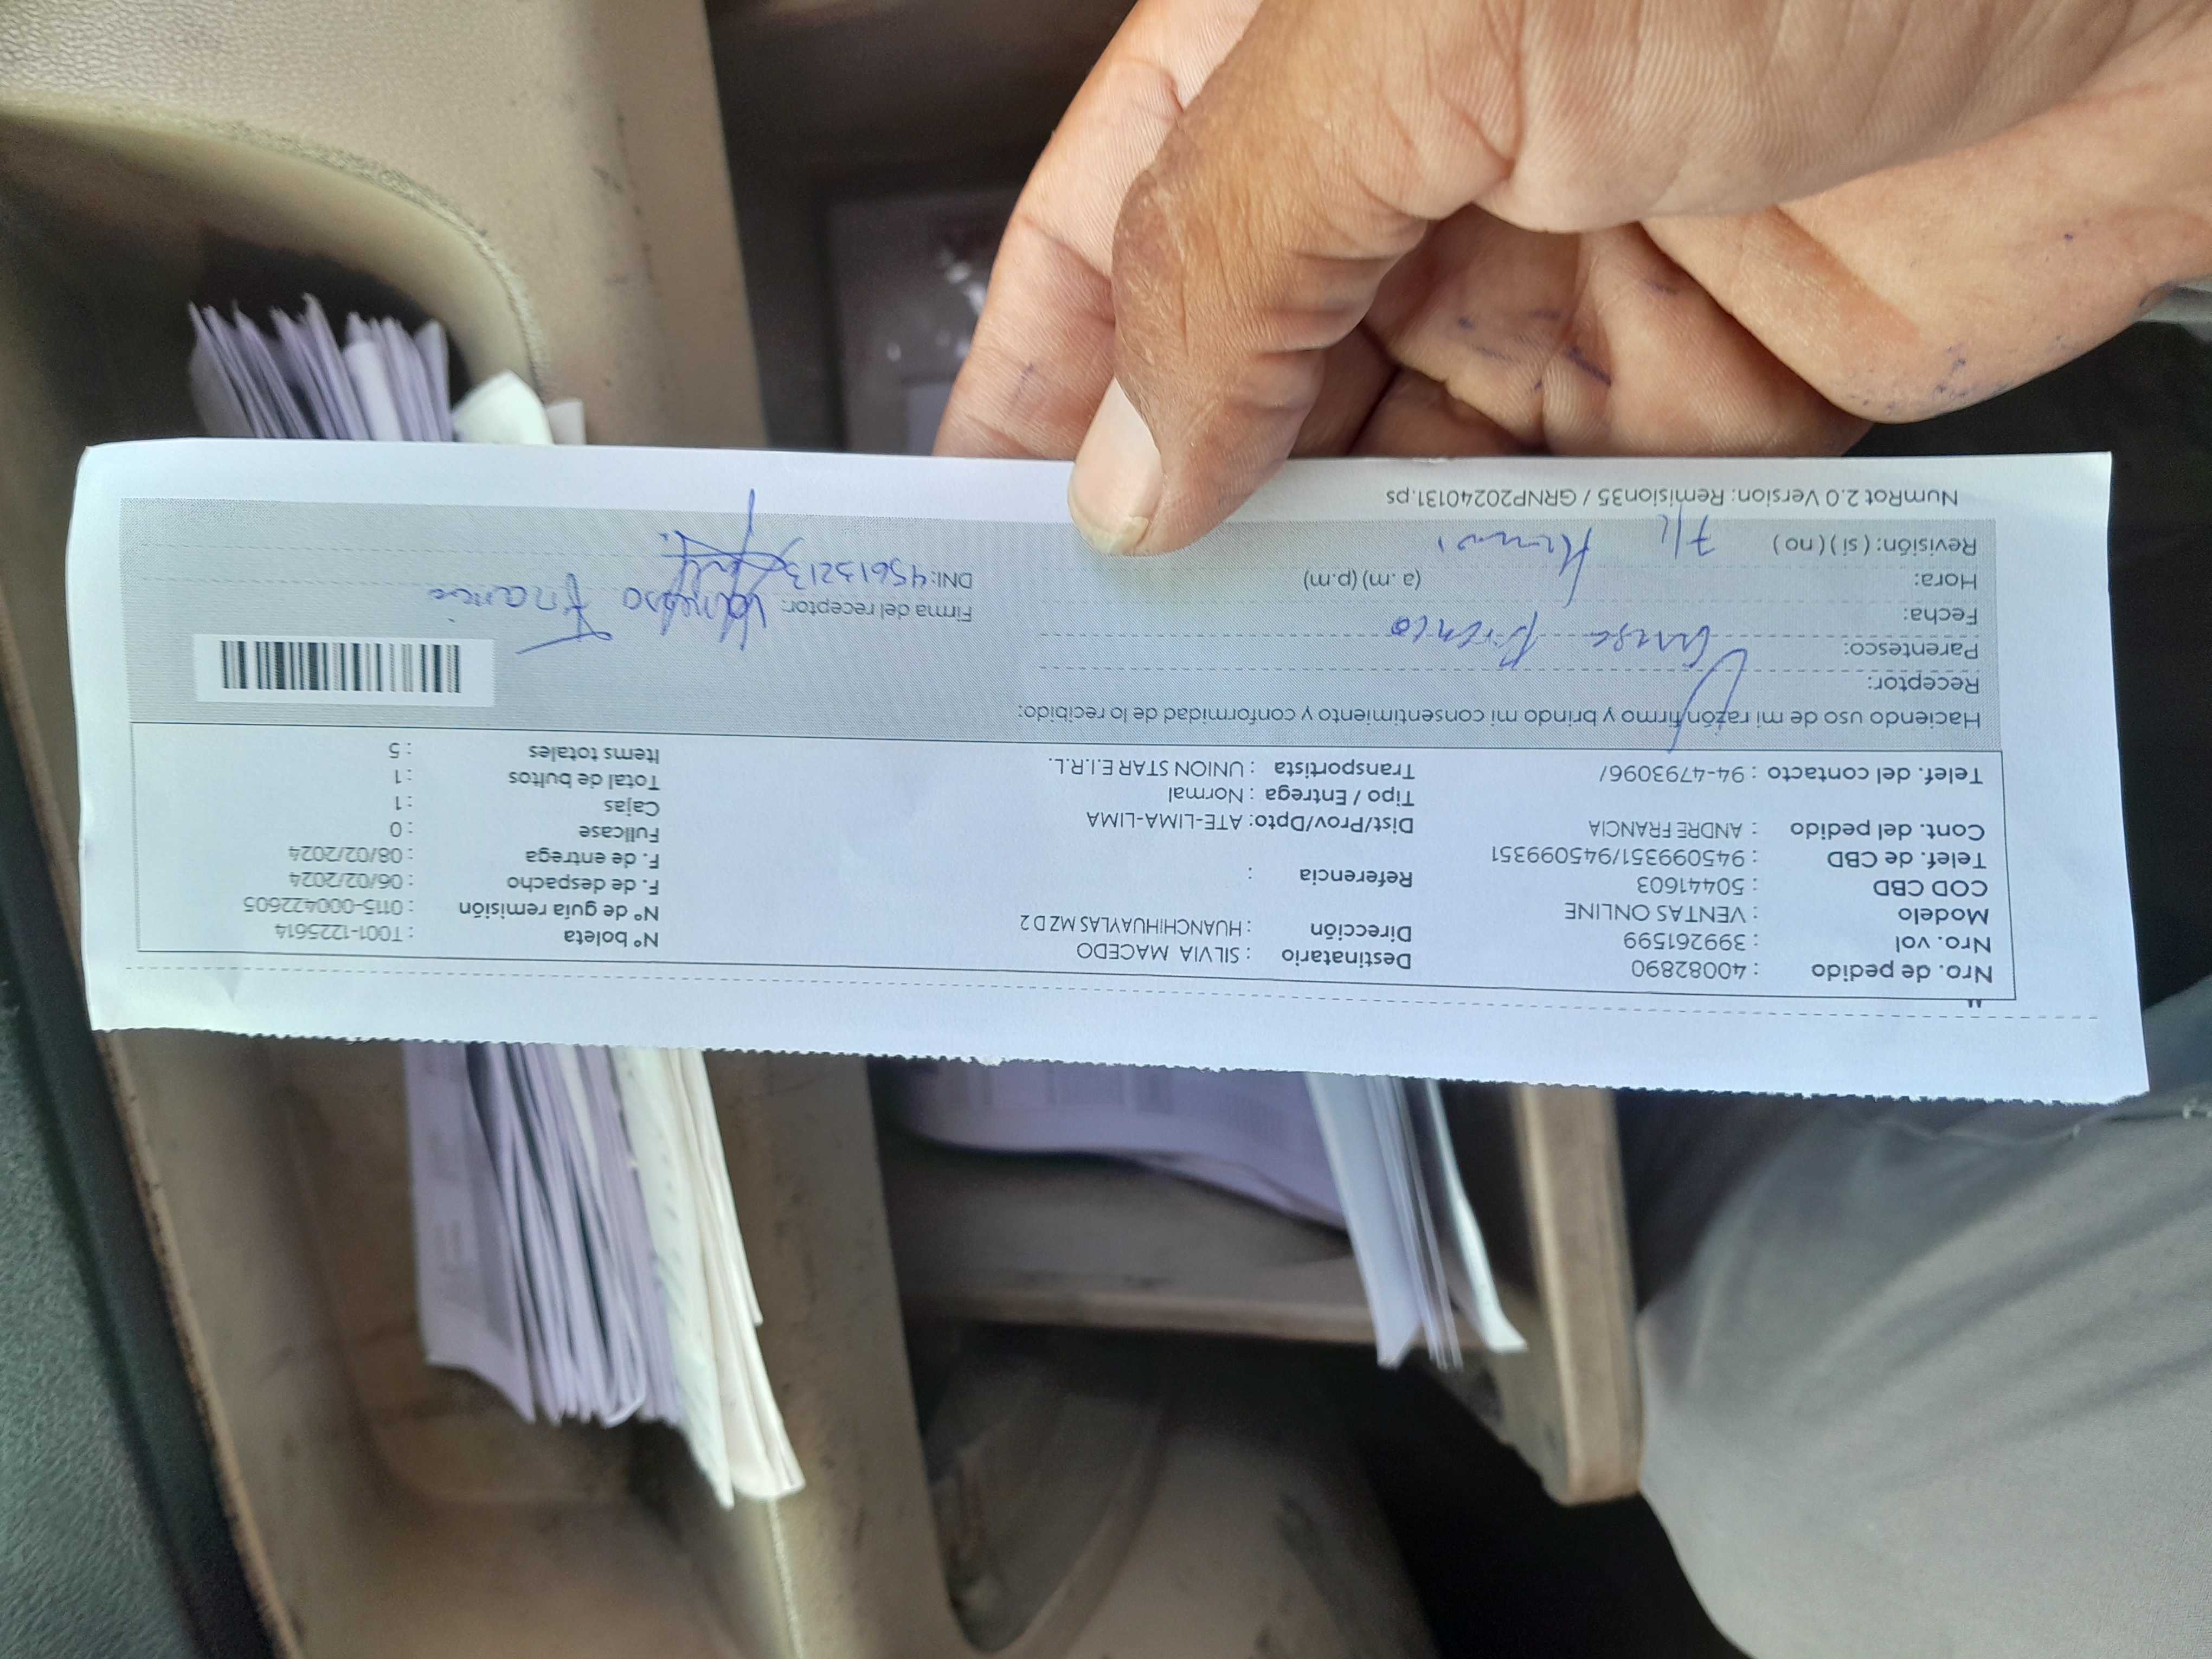 Nro. de pedido : 40082890
Nro. vol : 399261599
Modelo : VENTAS ONLINE
COD CBD : 50441603
Telef. de CBD : 945099351/945099351
Cont. del pedido : ANDRE FRANCIA
Telef. del contacto : 94-4793096/
Destinatario : SILVIA MACEDO
Dirección : HUANCHIHUAYLAS MZ D 2
Referencia :
Dist/Prov/Dpto: ATE-LIMA-LIMA
Tipo / Entrega : Normal
Transportista : UNION STAR E.I.R.L.
N° boleta : T001-1225614
N° de guía remisión : 0115-000422605
F. de despacho : 06/02/2024
F. de entrega : 08/02/2024
Fullcase : 0
Cajas : 1
Total de bultos : 1
Items totales : 5
Haciendo uso de mi razón firmo y brindo mi consentimiento y conformidad de lo recibido:
Receptor:
Parentesco:
Fecha:
Hora: (a. m) (p.m)
Revisión: ( si ) ( no )
Firma del receptor: Vanessa Francia
DNI: 45613213
NumRot 2.0 Version: Remision35 / GRNP20240131.ps